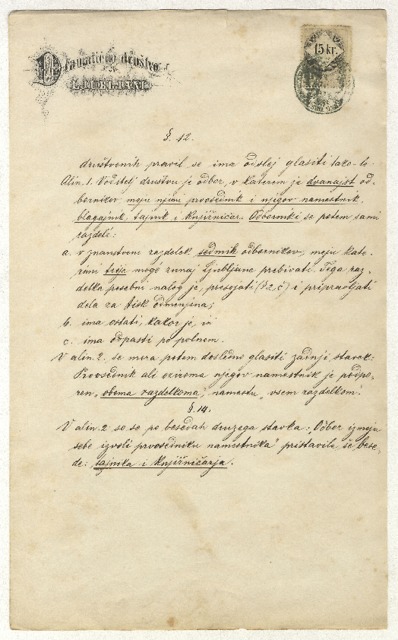 Dramatično društvo
v
LJUBLJANI.
15 kr.
§. 12.
društvenih pravil se ima odslej glasiti tako-le
Alin. 1. Voditelj društvu je odbor, v katerem je dvanajst od-
bornikov meju njimi prvosednik i njegov namestnik,
blagajnik, tajnik i knjižničar. Odborniki se potem sami
razdelé:
a. v znanstveni razdelek sedmih odbornikov, meju kate-
rimi trije mogo zunaj Ljubljane prebivati. Tega raz-
delka posebni nalog je, presojati (§ 2. č) i pripravljati
dela za tisk odmenjena;
b. ima ostati, kakor je, i
c. ima odpasti po polnem.
V alin. 2. se mora potem dosledno glasiti zadnji stavek:
Prvosednik ali oziroma njegov namestnik je podpo-
ren, obema razdelkoma, namestu „vsem razdelkom“.
§. 14.
V alin. 2 so se po besedah druzega stavka: „Odbor izmeju
sebe izvoli prvosedniku namestnika“ pristavila se bese-
de: tajnika i knjižničarja.